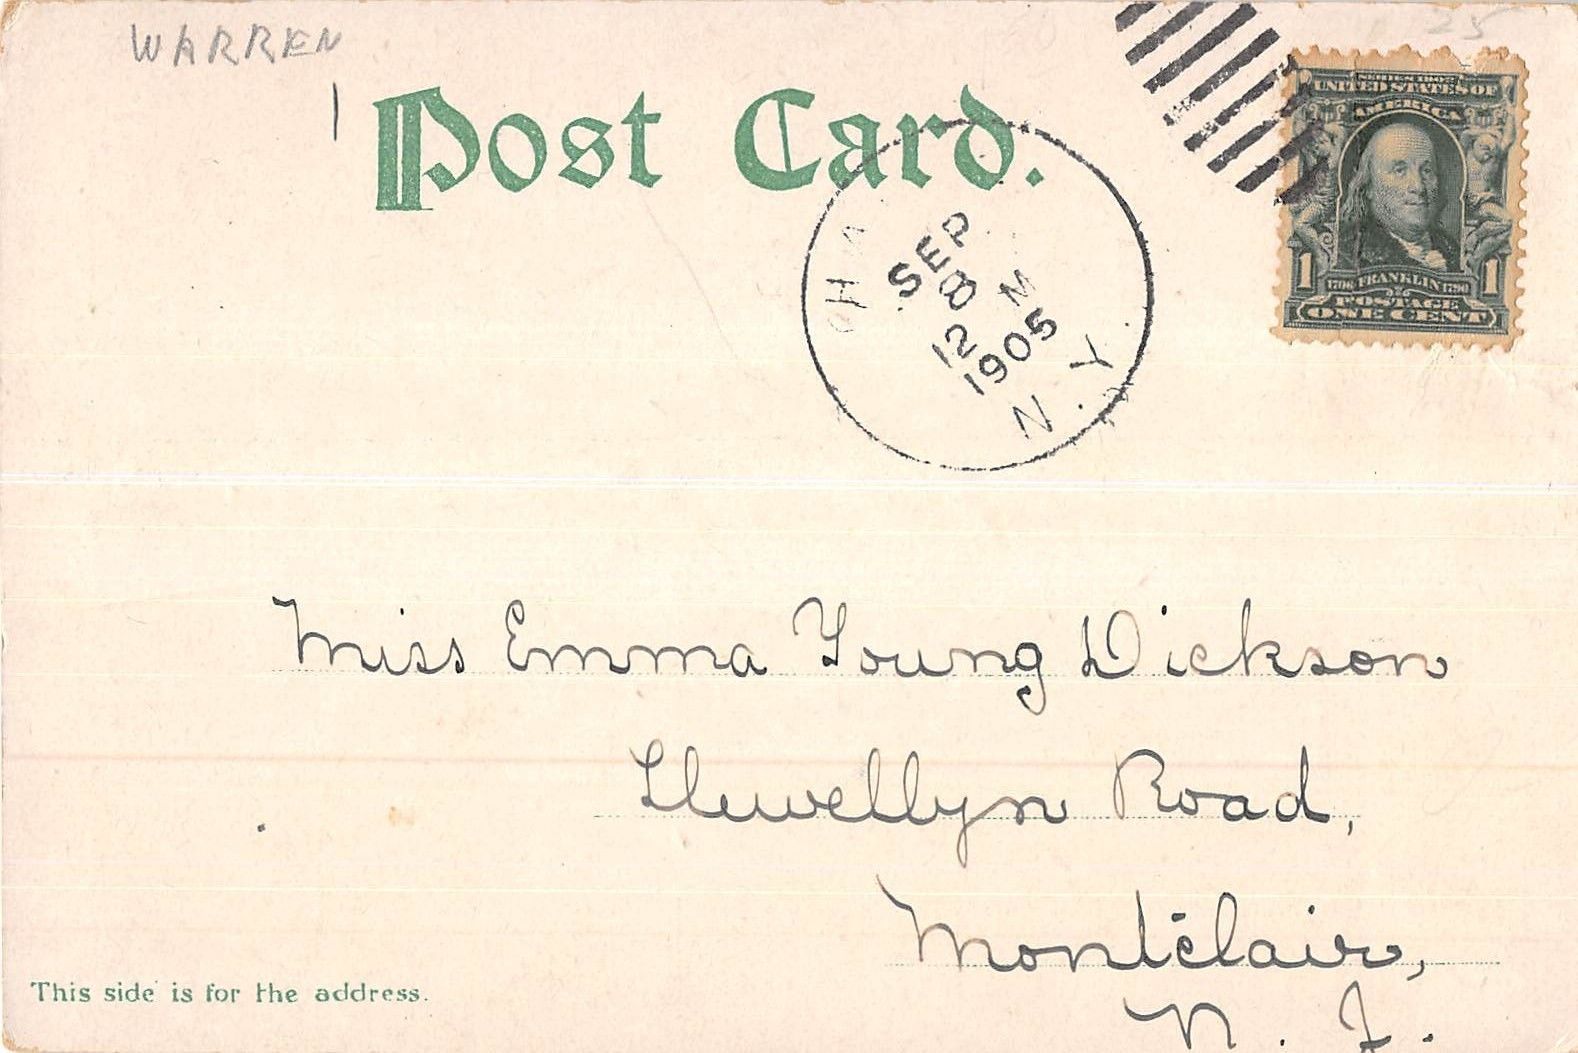 WARREN
25
Post Card.
SERIES 1902
UNITED STATES OF
AMERICA
1 1706 FRANKLIN 1790 1
POSTAGE
ONE CENT
SEP
8
12 M
1905
N.Y.
Miss Emma Young Dickson
Llewellyn Road,
Montclair,
N. J.
This side is for the address.